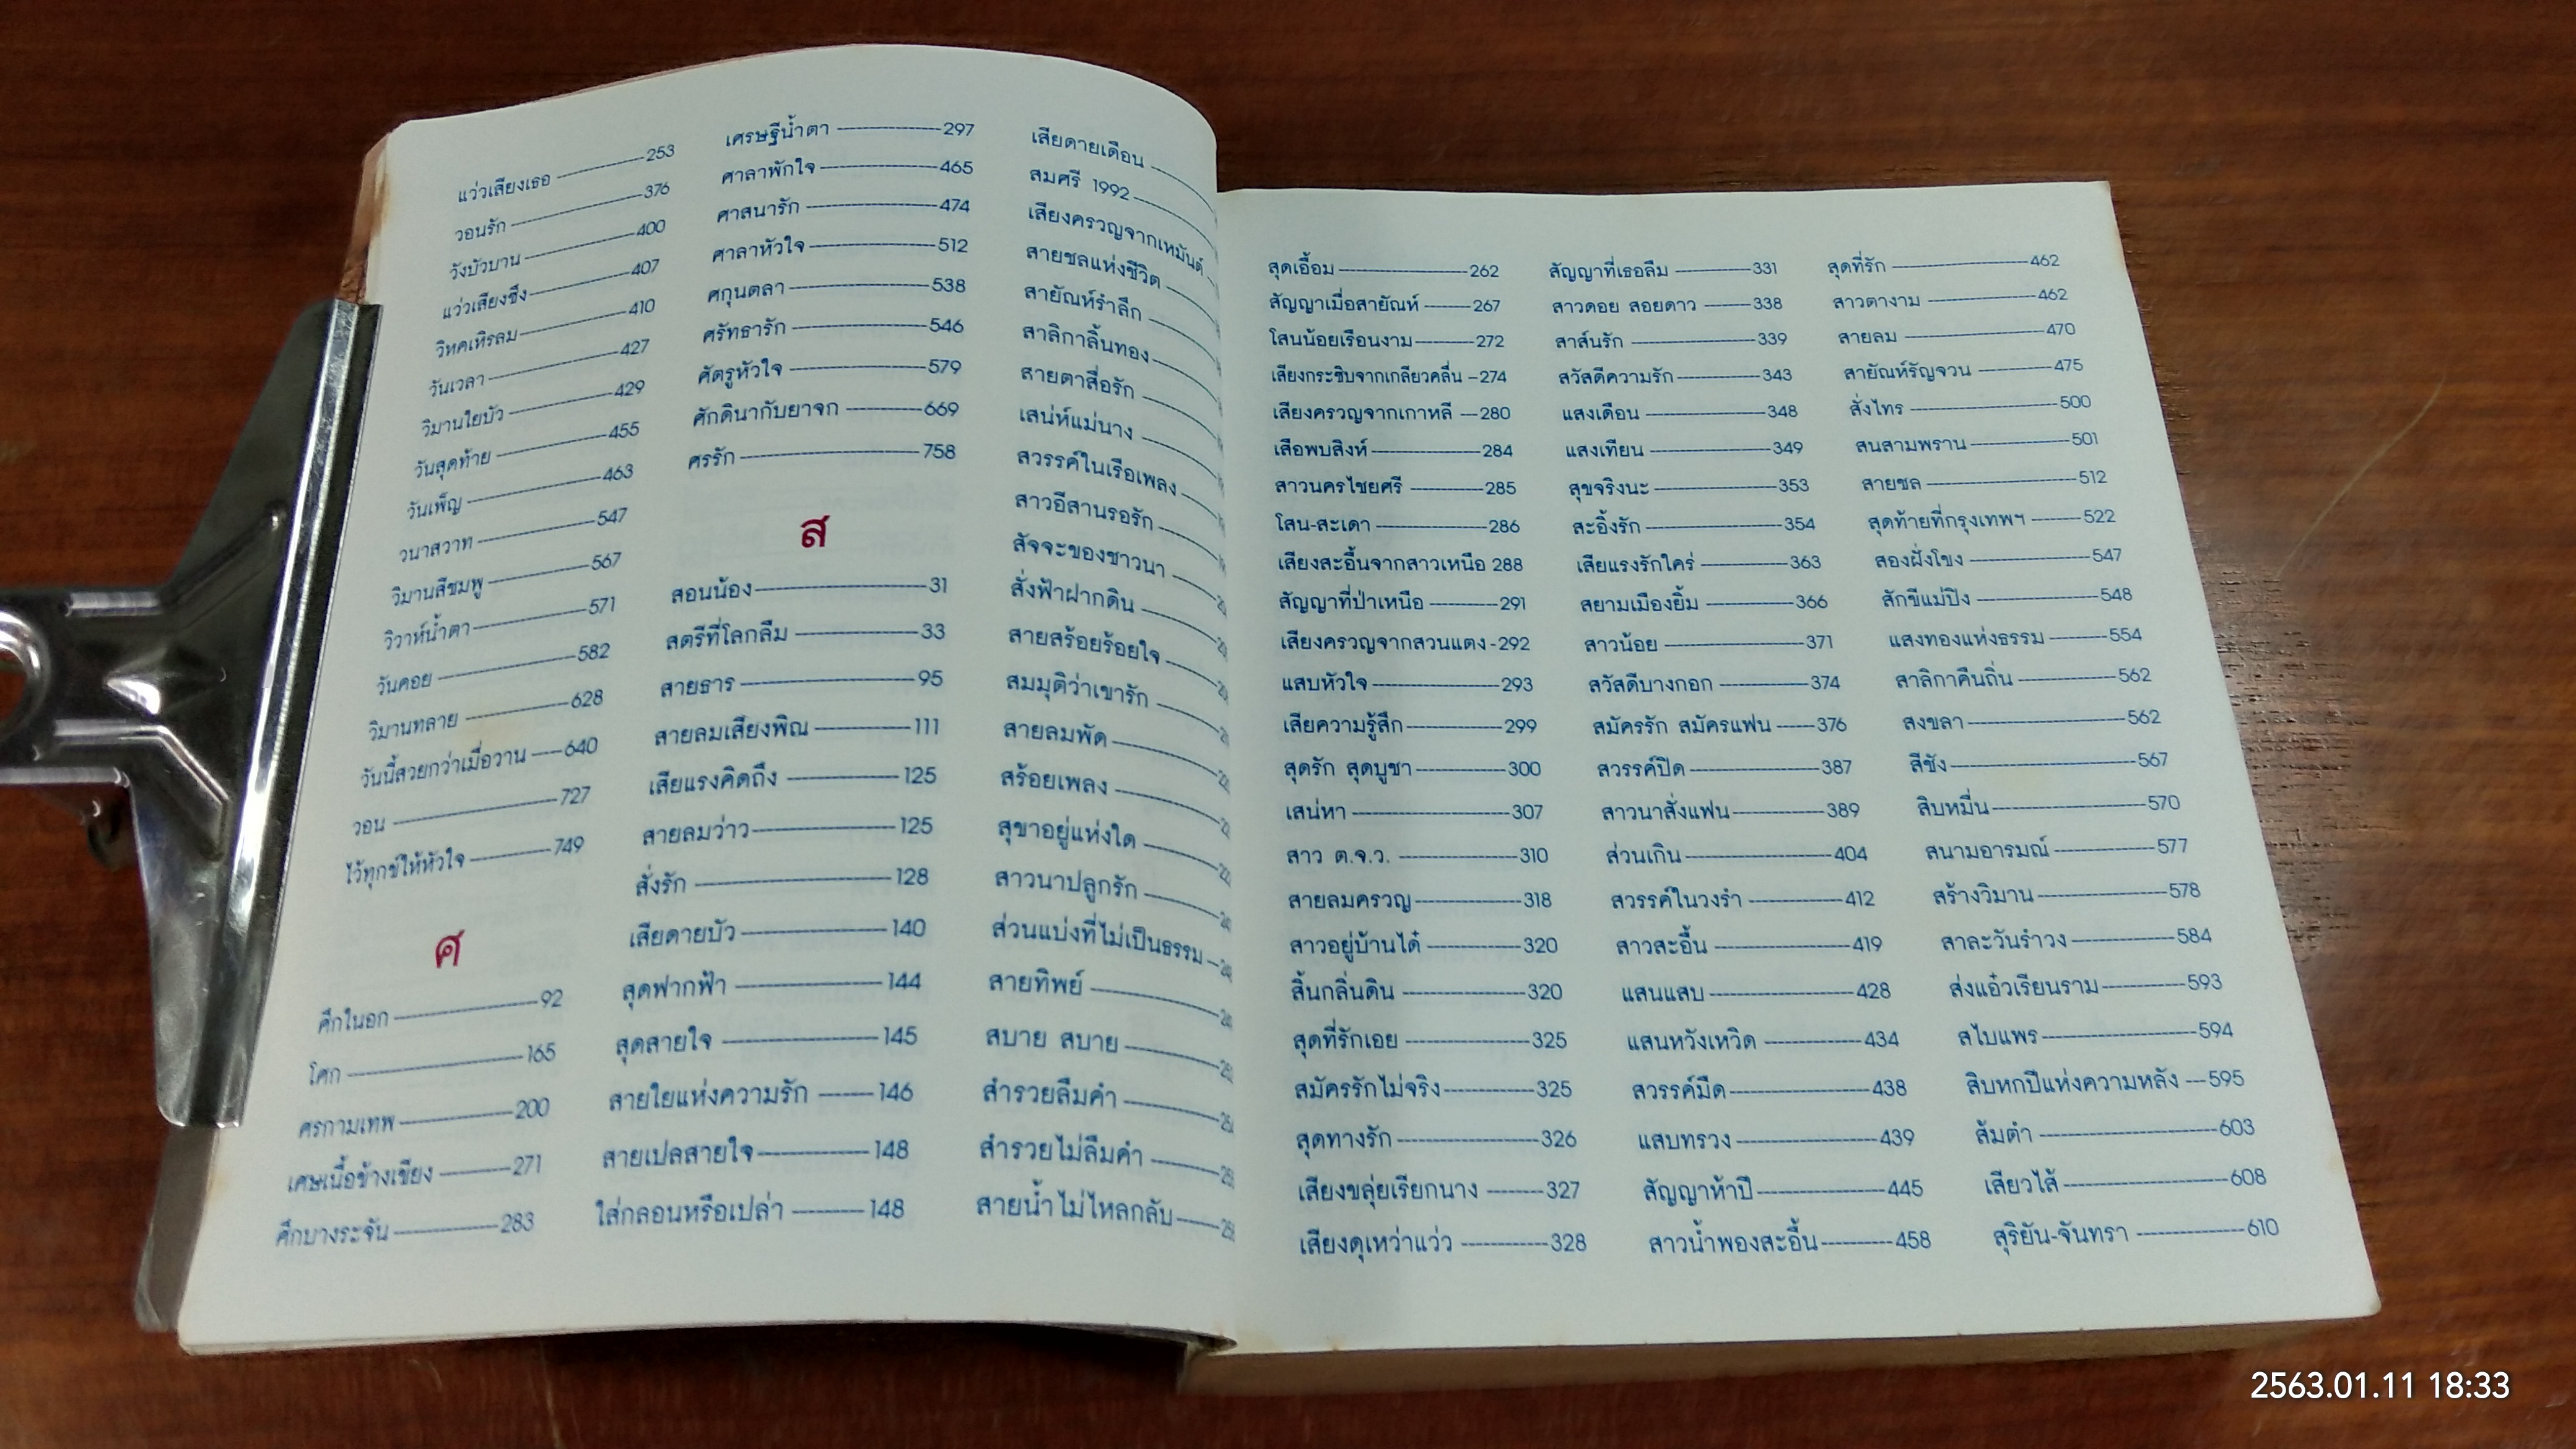 แว่วเสียงเธอ 253
วอนรัก 376
วังบัวบาน 400
แว่วเสียงซึง 407
วิหคเหิรลม 410
วันเวลา 427
วิมานใยบัว 429
วันสุดท้าย 455
วันเพ็ญ 463
วนาสวาท 547
วิมานสีชมพู 567
วิวาห์น้ำตา 571
วันคอย 582
วิมานทลาย 628
วันนี้สวยกว่าเมื่อวาน 640
วอน 727
ไว้ทุกข์ให้หัวใจ 749
ศ
ศึกในอก 92
โศก 165
ศรกามเทพ 200
เศษเนื้อข้างเขียง 271
ศึกบางระจัน 283
เศรษฐีน้ำตา 297
ศาลาพักใจ 465
ศาสนารัก 474
ศาลาหัวใจ 512
ศกุนตลา 538
ศรัทธารัก 546
ศัตรูหัวใจ 579
ศักดินากับยาจก 669
ศรรัก 758
ส
สอนน้อง 31
สตรีที่โลกลืม 33
สายธาร 95
สายลมเสียงพิณ 111
เสียแรงคิดถึง 125
สายลมว่าว 125
สั่งรัก 128
เสียดายบัว 140
สุดฟากฟ้า 144
สุดสายใจ 145
สายใยแห่งความรัก 146
สายเปลสายใจ 148
ใส่กลอนหรือเปล่า 148
เสียดายเดือน
สมศรี 1992
เสียงครวญจากเหมันต์
สายชลแห่งชีวิต
สายัณห์รำลึก
สาลิกาลิ้นทอง
สายตาสื่อรัก
เสน่ห์แม่นาง
สวรรค์ในเรือเพลง
สาวอีสานรอรัก
สัจจะของชาวนา
สั่งฟ้าฝากดิน
สายสร้อยร้อยใจ
สมมุติว่าเขารัก
สายลมพัด
สร้อยเพลง
สุขาอยู่แห่งใด
สาวนาปลูกรัก
ส่วนแบ่งที่ไม่เป็นธรรม
สายทิพย์
สบาย สบาย
สำรวยลืมคำ
สำรวยไม่ลืมคำ
สายน้ำไม่ไหลกลับ
สุดเอื้อม 262
สัญญาเมื่อสายัณห์ 267
โสนน้อยเรือนงาม 272
เสียงกระซิบจากเกลียวคลื่น 274
เสียงครวญจากเกาหลี 280
เสือพบสิงห์ 284
สาวนครไชยศรี 285
โสน-สะเดา 286
เสียงสะอื้นจากสาวเหนือ 288
สัญญาที่ป่าเหนือ 291
เสียงครวญจากสวนแตง 292
แสบหัวใจ 293
เสียความรู้สึก 299
สุดรัก สุดบูชา 300
เสน่หา 307
สาว ต.จ.ว. 310
สายลมครวญ 318
สาวอยู่บ้านได๋ 320
สิ้นกลิ่นดิน 320
สุดที่รักเอย 325
สมัครรักไม่จริง 325
สุดทางรัก 326
เสียงขลุ่ยเรียกนาง 327
เสียงดุเหว่าแว่ว 328
สัญญาที่เธอลืม 331
สาวดอย สอยดาว 338
สาส์นรัก 339
สวัสดีความรัก 343
แสงเดือน 348
แสงเทียน 349
สุขจริงนะ 353
สะอิ้งรัก 354
เสียแรงรักใคร่ 363
สยามเมืองยิ้ม 366
สาวน้อย 371
สวัสดีบางกอก 374
สมัครรัก สมัครแฟน 376
สวรรค์ปิด 387
สาวนาสั่งแฟน 389
ส่วนเกิน 404
สวรรค์ในวงรำ 412
สาวสะอื้น 419
แสนแสบ 428
แสนหวังเหวิด 434
สวรรค์มืด 438
แสบทรวง 439
สัญญาห้าปี 445
สาวน้ำพองสะอื้น 458
สุดที่รัก 462
สาวตางาม 462
สายลม 470
สายัณห์รัญจวน 475
สั่งไทร 500
สนสามพราน 501
สายชล 512
สุดท้ายที่กรุงเทพฯ 522
สองฝั่งโขง 547
สักขีแม่ปิง 548
แสงทองแห่งธรรม 554
สาลิกาคืนถิ่น 562
สงขลา 562
สีชัง 567
สิบหมื่น 570
สนามอารมณ์ 577
สร้างวิมาน 578
สาละวันรำวง 584
ส่งแอ๋วเรียนราม 593
สไบแพร 594
สิบหกปีแห่งความหลัง 595
ส้มตำ 603
เสียวไส้ 608
สุริยัน-จันทรา 610
2563.01.11 18:33